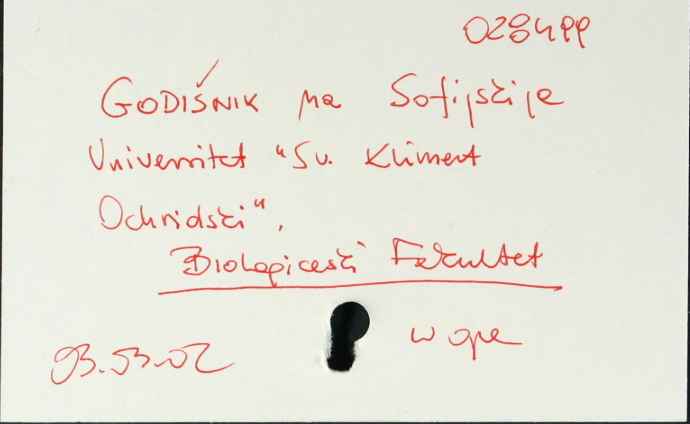 028499
GODIŠNIK na Sofijskija
Universitet "Sv. Kliment
Ochridski",
Biologiceski Fakultet
w opr
93.53.02